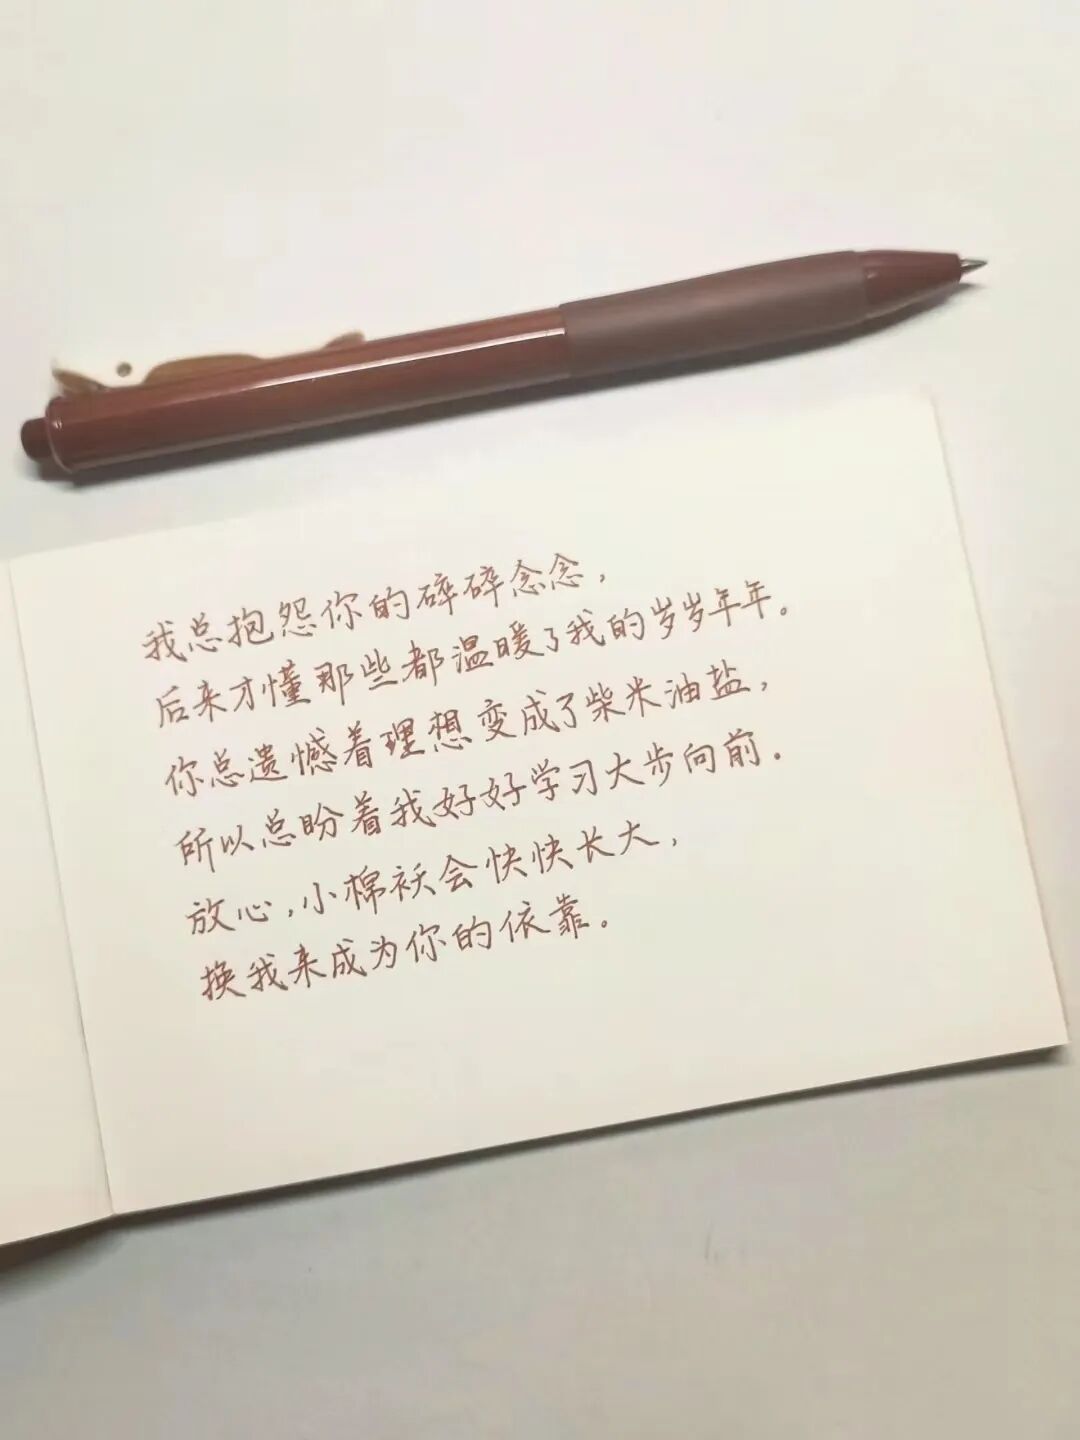 我总抱怨你的碎碎念念，
后来才懂那些都温暖了我的岁岁年年。
你总遗憾着理想变成了柴米油盐，
所以总盼着我好好学习大步向前.
放心,小棉袄会快快长大，
换我来成为你的依靠。